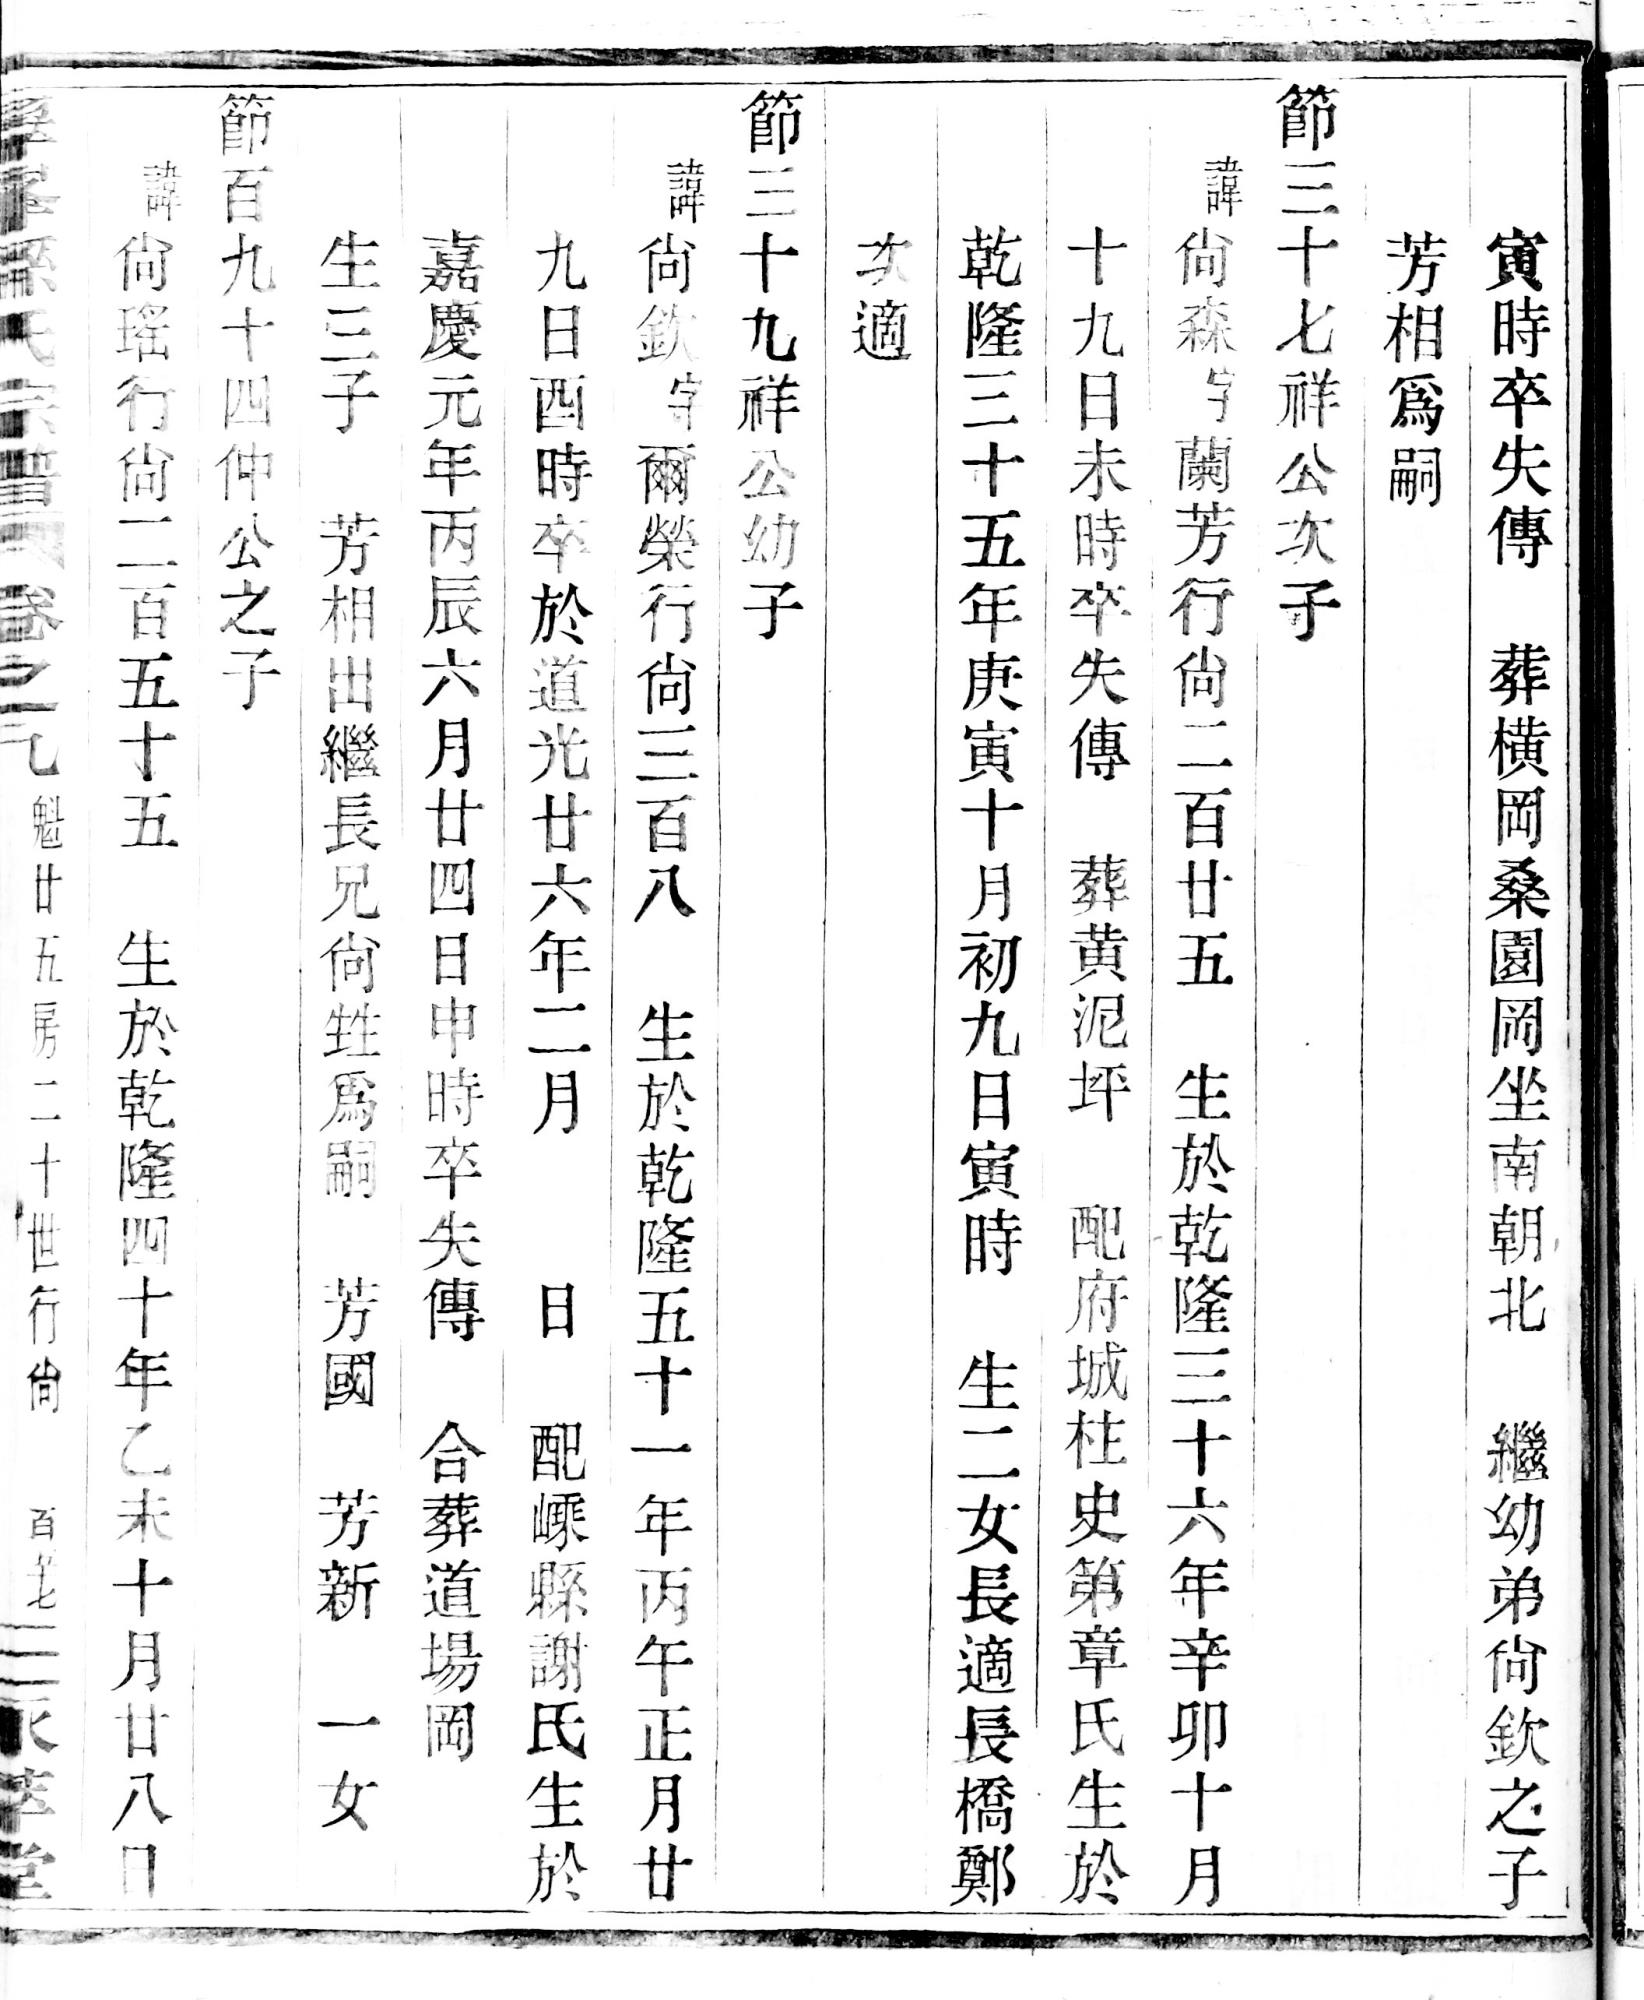 寅時卒失傳　葬橫岡桑園岡坐南朝北　繼幼弟尙欽之子
芳相爲嗣
節三十七祥公次子
諱尙森字蘭芳行尙二百廿五　生於乾隆三十六年辛卯十月
十九日未時卒失傳　葬黄泥坪　配府城柱史第章氏生於
乾隆三十五年庚寅十月初九日寅時　生二女長適長橋鄭
次適
節三十九祥公幼子
諱尙欽字爾榮行尙三百八　生於乾隆五十一年丙午正月廿
九日酉時卒於道光廿六年二月　　日　配嵊縣謝氏生於
嘉慶元年丙辰六月廿四日申時卒失傳　合葬道場岡
生三子　芳相出繼長兄尙甡爲嗣　芳國　芳新　一女
節百九十四仲公之子
諱尙瑤行尙二百五十五　生於乾隆四十年乙未十月廿八日
氏宗譜卷之九　魁廿五房二十世行尙　百　萃堂